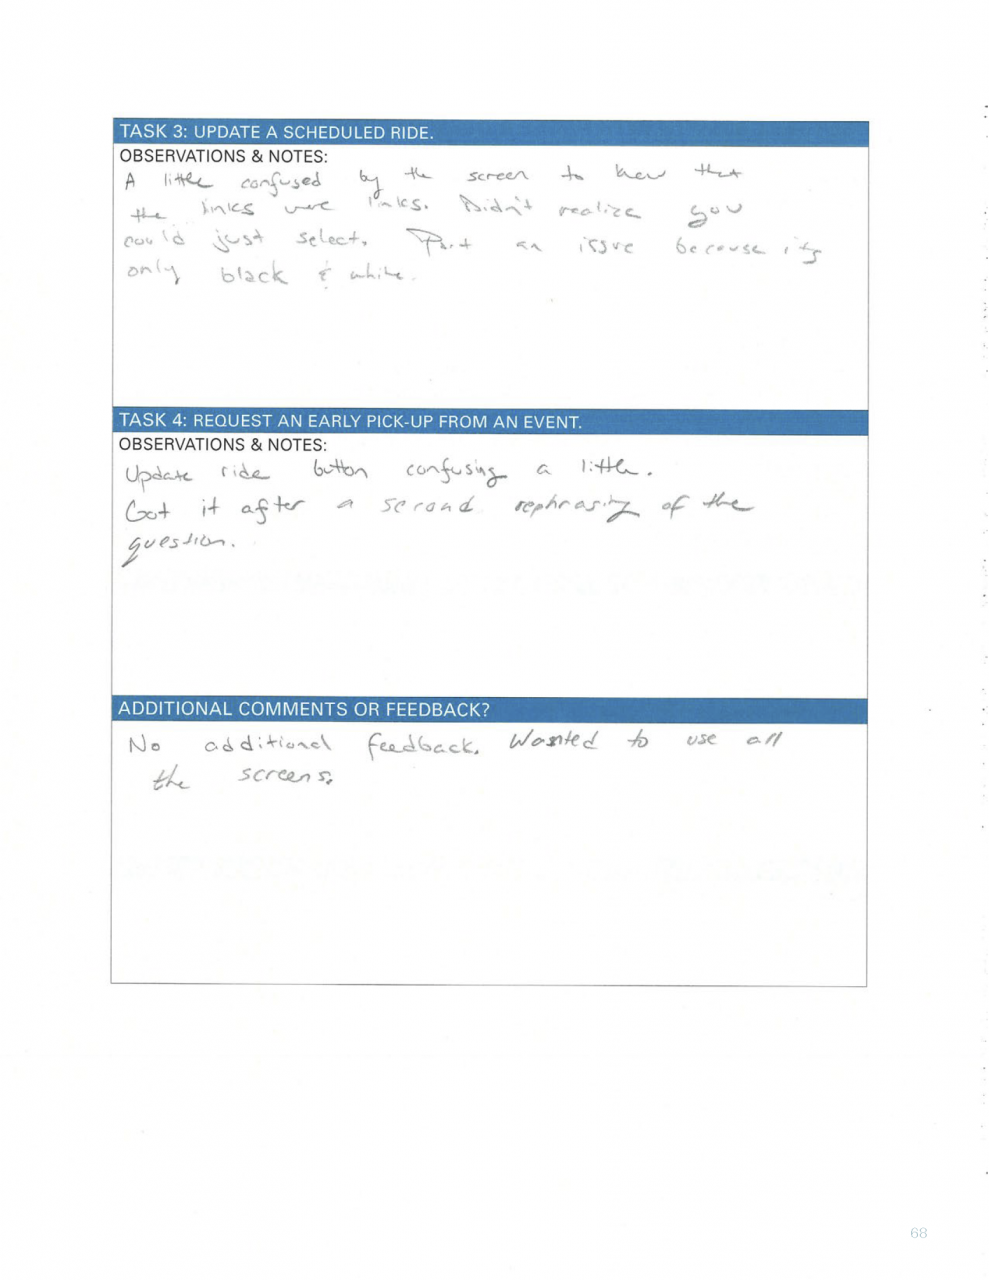 TASK 3: UPDATE A SCHEDULED RIDE.
OBSERVATIONS & NOTES:
A little confused by the screen to know that
the links were links. Didn't realize you
could just select. Part an issue because its
only black & white.
TASK 4: REQUEST AN EARLY PICK-UP FROM AN EVENT.
OBSERVATIONS & NOTES:
Update ride button confusing a little.
Got it after a second rephrasing of the
question.
ADDITIONAL COMMENTS OR FEEDBACK?
No additional feedback. Wanted to use all
the screens.
68